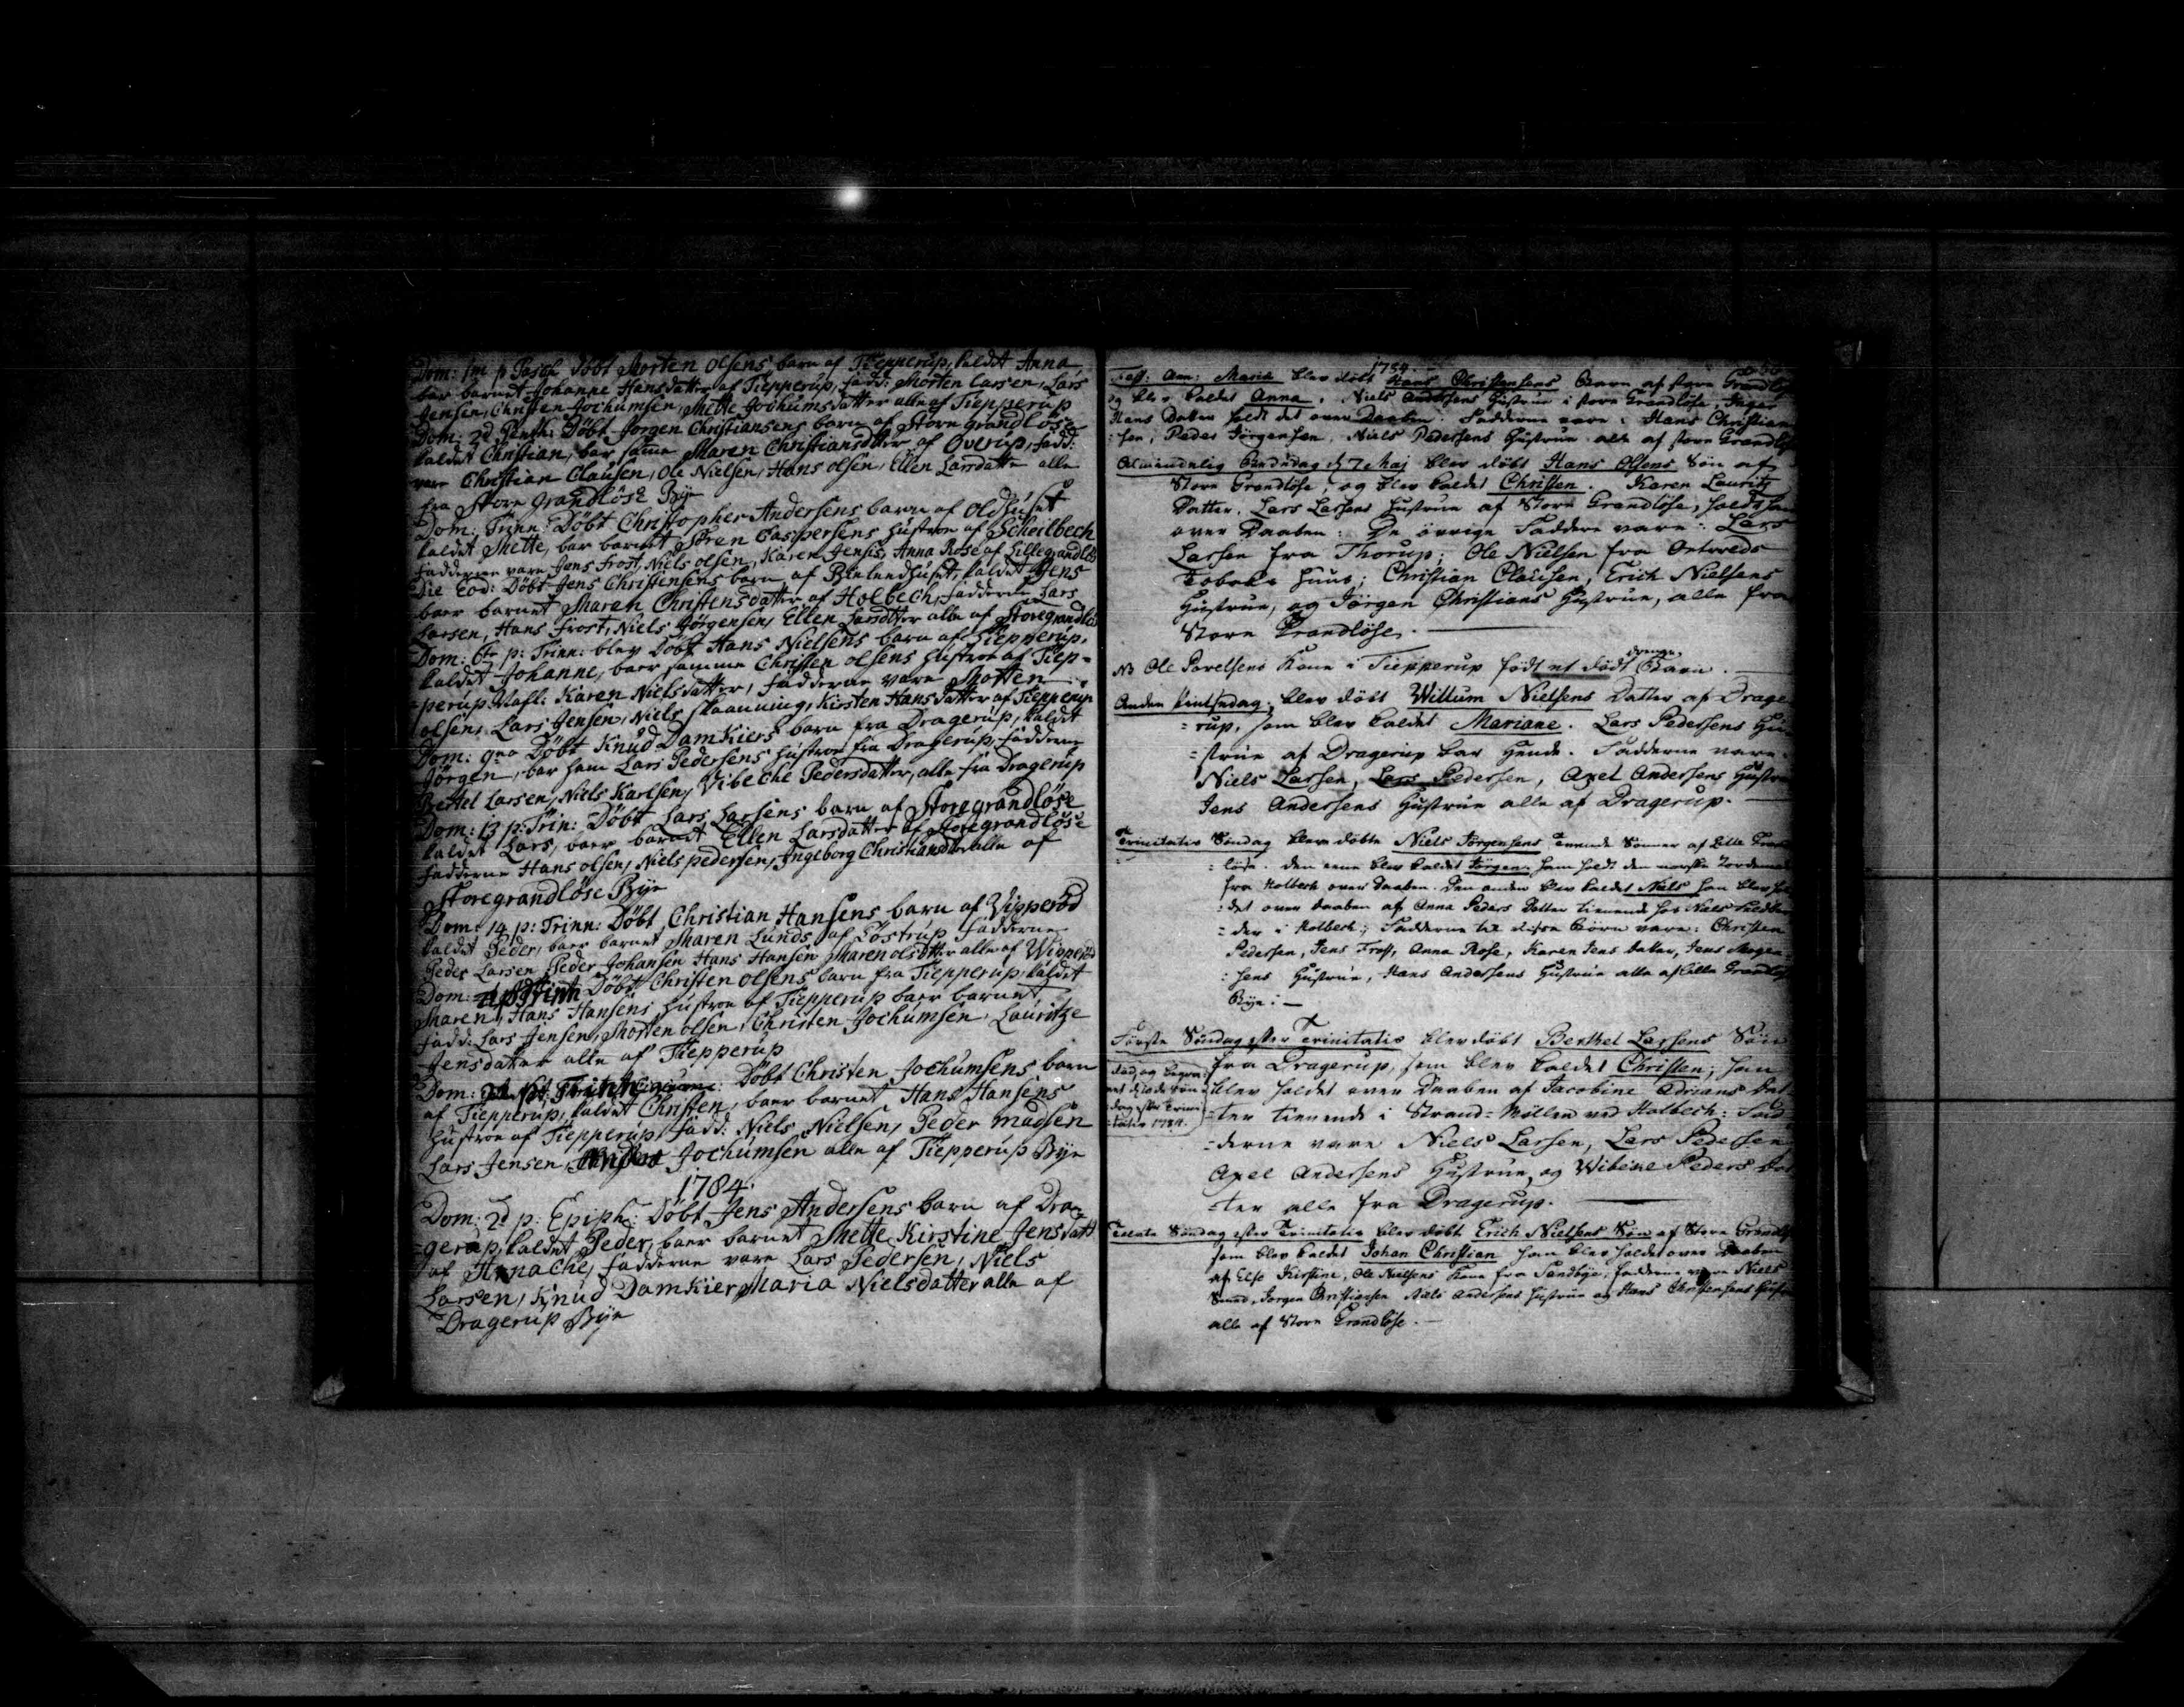 Dom: 1m p Pasch Döbt Morten Olsens barn af Tiepperup, kaldt Anna,
bar barnet Johanne Hansdatter af Tiepperup, fadd: Morten Larsen, Lars
Jensen, Christen Jochumsen, Mette Jochumsdatter alle af Tiepperup
Dom: 2d Pentk: Döbt Jorgen Christiansens barn af Store grandlöse
kaldet Christian, bar samme Maren Christiansdatter af Overup, fadd:
vare Christian Clausen, Ole Nielsen, Hans olsen, Ellen Larsdatter alle
fra Store grandlöse Bye
Dom: Trinn: Döbt Christopher Andersens barn af Oldhuset
kaldet Mette, bar barnet Sören Caspersens hustroe af Scheilbech
fadderne vare Jens Frost, Niels olsen, Karen Jensis, Anna Rose af Lillegrandlös
Die Eod: Döbt Jens Christensens barn af kaldet Jens
baer barnet Maren Christensdatter af Holbech, fadderne Lars
Larsen, Hans frost, Niels Jörgensen, Ellen Larsdtter alle af Storegrandlös
Dom: 6te p: Trinn: blev Döbt Hans Nielsens barn af Tiepperup,
kaldet Johanne, baer samme Christen olsens hustroe af Tiep-
perup Mafl: Karen Nielsdatter, fadderne vare Morten
olsen, Lars Jensen, Niels Skaanning, Kirsten Hansdatter af Tiepperup
Dom: 9na Döbt Knud Damkiers barn fra Dragerup, kaldet
Jörgen, bar ham Lars Pedersens hustroe fra Dragerup, fadderne
Bertel Larsen, Niels Karlsen, Vibeche Pedersdatter, alle fra Dragerup
Dom: 13 p: Trin: Döbt Lars Larsens barn af Storegrandlöse
kaldet Lars, baer barnet Ellen Larsdatter af Storegrandlöse
fadderne Hans olsen, Niels pedersen, Ingeborg Christiansdtter alle af
Storegrandlöse Bye
Dom: 14 p: Trinn: Döbt Christian Hansens barn af Vipperöd
kaldet Peder, baer barnet Maren Lunds af Löstrup fadderne
Peder Larsen Peder Johansen Hans Hansen Maren olsdtter alle af Wipperöd
Dom: Döbt Christen olsens barn fra Tiepperup, kaldet
Maren, Hans Hansens hustroe af Tiepperup baer barnet
fadd: Lars Jensen, Morten olsen, Christen Jochumsen, Lauritze
Jensdatter alle af Tiepperup
Dom: Döbt Christen Jochumsens barn
af Tiepperup, kaldet Christen, baer barnet Hans Hansens
hustroe af Tiepperup, fadd: Niels Nielsen, Peder Madsen
Lars Jensen, Jochumsen alle af Tiepperup Bye
1784.
Dom: 2d p: Epiph: Döbt Jens Andersens barn af Dra-
gerup, kaldet Peder, baer barnet Mette Kirstine Jensdatt
af Arnache, fadderne vare Lars Pedersen, Niels
Larsen, Knud Damkier, Maria Nielsdatter alle af
Dragerup Bye
1784.
Fest: Ann: Mariæ blev döbt Hans Christensens Barn af store Grandlö
og blev kaldet Anna. Niels Andersens Hustrue i store Grandlöse, Inger
Hans Datter holdt det over Daaben. Fadderne vare: Hans Christian
sen, Peder Jörgensen, Niels Pedersens Hustrue alle af store Grandlöse
Almindelig Bededag d 7 Maj blev döbt Hans Olsens Sön af
Store Grandlöse, og blev kaldet Christen. Karen Lauritz
Datter, Lars Larsens Hustrue af Store Grandlöse, holdt ham
over Daaben: De övrige Faddere vare: Lars
Larsen fra Thorup; Ole Nielsen fra
Huus; Christian Clausen, Erich Nielsens
Hustrue, og Jörgen Christians Hustrue, alle fra
Store Grandlöse.
NB Ole Povelsens Kone i Tiepperup födt et dödt Barn.
drenge
Anden Pintsedag, blev döbt Willum Nielsens Datter af Drage
=rup, som blev kaldet Mariane. Lars Pedersens Hu
=strue af Dragerup bar hende. Fadderne vare
Niels Larsen, Lars Pedersen, Axel Andersens Hustrue
Jens Andersens Hustrue alle af Dragerup.
Trinitatis Söndag bleve döbte Niels Jörgensens Sönner af Lille Grand
löse. den eene blev kaldet Jörgen. ham holdt den
fra Holbech over Daaben. Den anden blev kaldet Niels han blev hol
det over daaben af Anna Peders Datter tienende hos Niels
der i Holbech; Fadderne til disse Börn vare: Christen
Pedersen, Jens Frost, Anna Rose, Karen Jens datter, Jens Mogen
sens Hustrue, Hans Andersens Hustrue alle af Lille Grandlöse
Bye:
Förste Söndag efter Trinitatis blev döbt Berthel Larsens Sön
fra Dragerup, som blev kaldet Christen; han
död, og begra
vet Sön
dag efter Trini
tatis 1784.
blev holdet over Daaben af Jacobine Adrians Dat
ter tienende i Strand-Möllen ved Holbech: Fad
derne vare Niels Larsen, Lars Pedersen
Axel Andersens Hustrue, og Wibeke Peders Dat
ter alle fra Dragerup.
Söndag efter Trinitatis blev döbt Erich Nielsens Sön af Store Grandlö
som blev kaldet Johan Christian han blev holdet over Daaben
af Else Kirstine, Ole Nielsens Kone fra Sandbye; fadderne vare Niels
Svend, Jorgen Christiansen Niels Andersens Hustrue og Hans Christensens Hustru
alle af Store Grandlöse.